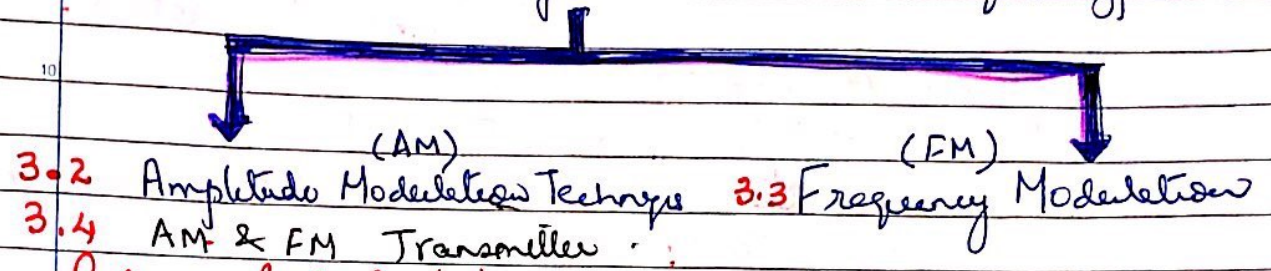 10
(AM) (FM)
3.2 Amplitude Modulation Technique 3.3 Frequency Modulation
3.4 AM & FM Transmitter .